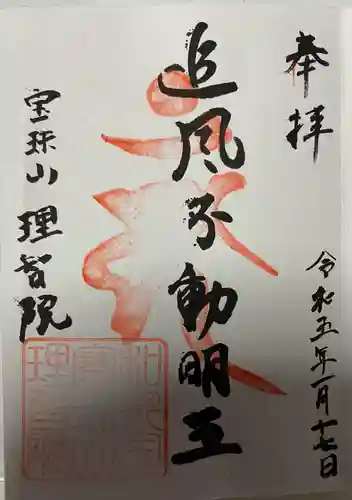 奉拝
令和五年一月十七日
追風不動明王
宝珠山 理智院